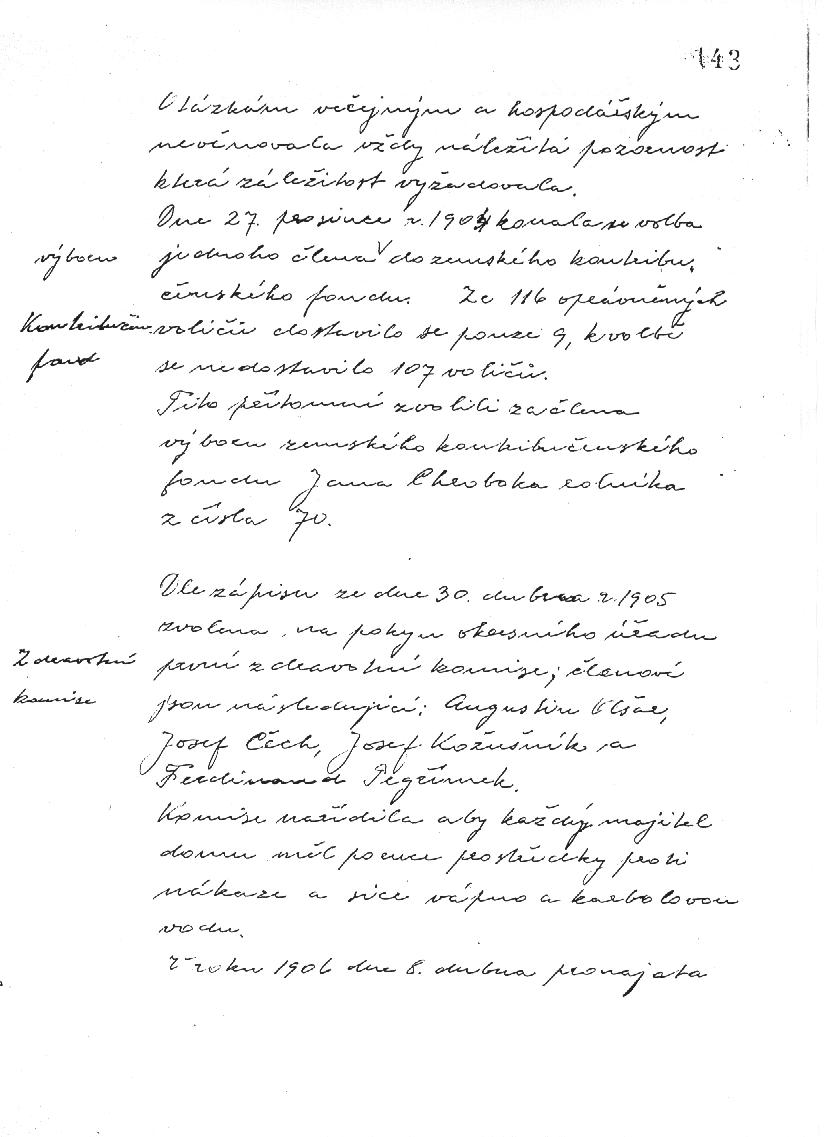 143
Otázkám veřejným a hospodářským
nevěnovala vždy náležitá pozornost
která záležitost vyžadovala.
Dne 27. prosince r. 1904 konala se volba
výboru
jednoho člena do zemského kontribu.
čenského fondu. Ze 116 oprávněných
Kontribučen.
voličů dostavilo se pouze 9, k volbě
fond
se nedostavilo 107 voličů.
Tito přítomní zvolili za člena
výboru zemského kontribučenského
fondu Jana Chroboka rolníka
z čísla 70.
Dle zápisu ze dne 30. dubna r. 1905
zvolena na pokyn okresního úřadu
Zdravotní
první zdravotní komise; členové
komise
jsou následující: Augustin
Josef Čech, Josef Kožušník a
Ferdinand Pegřímek.
Komise nařídila aby každý majitel
domu měl po ruce prostředky proti
nákaze a sice vápno a karbolovou
vodu.
V roku 1906 dne 8. dubna pronajata